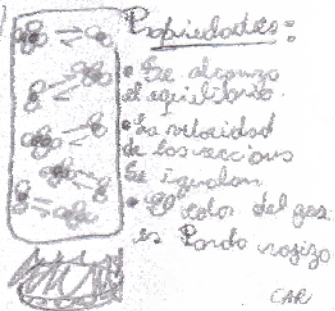 Propiedades:
• Se alcanza
el equilibrio.
• La velocidad
de las reaccions
se igualan
• El color del gas
es Pardo rojizo
CAR